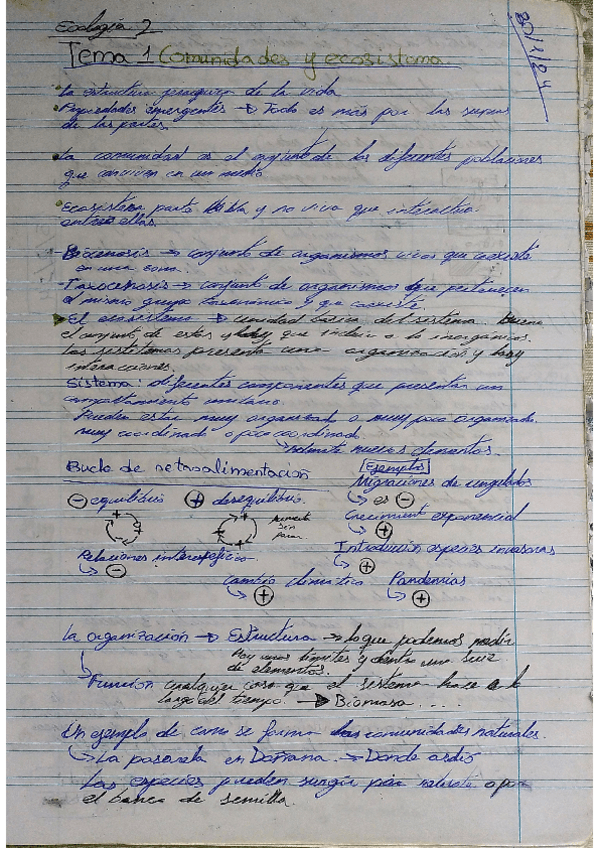 Ecología 2
30/1/24
Tema 1 Comunidades y ecosistema
La estructura jerárquica de la vida
Propiedades emergentes → Todo es más por las sumas
de las partes.
La comunidad es el conjunto de las diferentes poblaciones
que conviven en un medio
Ecosistema parte viva y no viva que interactúa
entre ellas.
Biocenosis → conjunto de organismos vivos que coexiste
en una zona.
Taxocenosis → conjunto de organismos que pertenecen
al mismo grupo taxonómico y que coexiste
El ecosistema → unidad básica del sistema.
el conjunto de estas y hay que incluir a lo inorgánico.
Los sistemas presenta una organización y hay
interacciones.
Sistema: diferentes componentes que presentan un
comportamiento unitario.
Pueden estar muy organizado o muy poco organizado.
muy coordinado o poco coordinado.
nuevos elementos.
Bucle de retroalimentación
Ejemplos
Migraciones de ungulados
↳ es ⊖
⊖ equilibrio ⊕ desequilibrio.
aumenta
sin
parar.
Creciment exponencial
↳ ⊕
Introducción especies invasoras
↳ ⊕
Relaciones interespecífico
↳ ⊖
Cambio climático
↳ ⊕
Pandemias
↳ ⊕
La organización → Estructura → lo que podemos medir
Hay unos límites y dentro una serie
de elementos.
↳ Función cualquier cosa que el sistema hace a lo
largo del tiempo. → Biomasa ....
Un ejemplo de como se forma las comunidades naturales.
↳ La pasarela en Doñana. → Donde ardió
Las especies pueden surgir por o por
el banco de semilla.